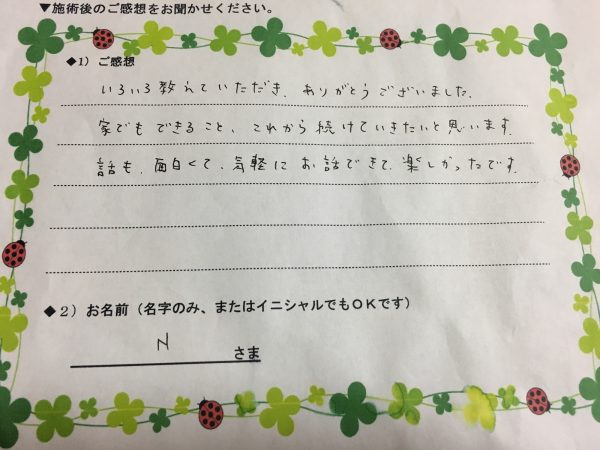 ▼施術後のご感想をお聞かせください。
◆1）ご感想
いろいろ教えていただき、ありがとうございました。
家でもできること、これから続けていきたいと思います。
話も、面白くて、気軽にお話できて、楽しかったです。
◆2）お名前（名字のみ、またはイニシャルでもＯＫです）
N さま